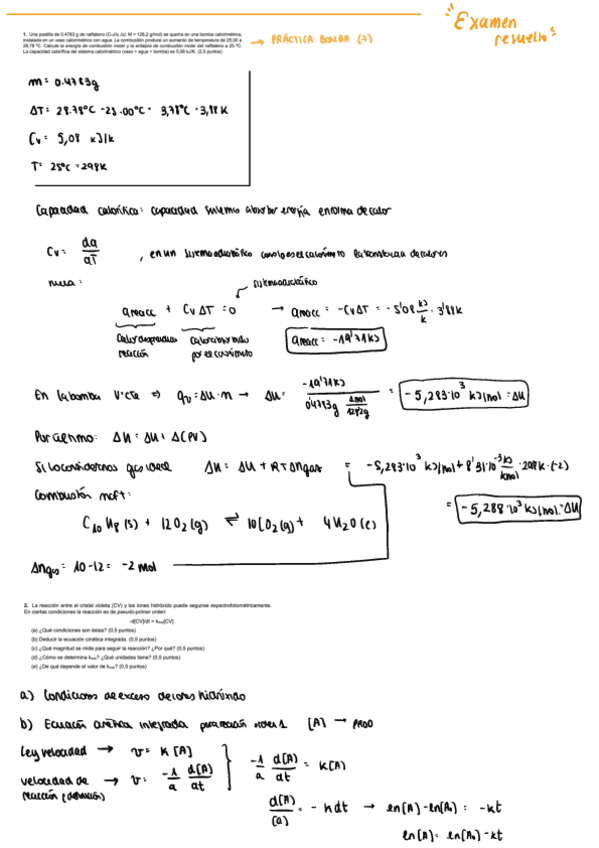 Examen
resuelto
1. Una pastilla de 0,4783 g de naftaleno (C₁₀H₈ (s); M = 128,2 g/mol) se quema en una bomba calorimétrica,
instalada en un vaso calorimétrico con agua. La combustión produce un aumento de temperatura de 25,00 a
28,78 ºC. Calcule la energía de combustión molar y la entalpía de combustión molar del naftaleno a 25 ºC.
La capacidad calorífica del sistema calorimétrico (vaso + agua + bomba) es 5,08 kJ/K. (2,5 puntos)
→ PRÁCTICA BOMBA (7)
m = 0.4783g
ΔT = 28.78ºC - 25.00ºC = 3,78ºC = 3,88K
Cv = 5,08 kJ/k
T = 25ºC = 298K
Capacidad calorífica: capacidad sistema absorber energía en forma de calor
Cv = dq/dT , en un sistema adiabático como lo es el calorímetro la transferencia de calor es
nula:
sistema adiabático
qreacc + CvΔT = 0 → qreacc = -CvΔT = -5'08 kJ/k · 3'88K
Calor desprendido reacción
calor absorbido por el calorímetro
qreacc = -19'71kJ
En la bomba V=cte ⇒ qv = ΔU·n → ΔU = -19'71kJ / 0'4783g 1mol/128'2g = -5,283·10³ kJ/mol = ΔU
Por último: ΔH = ΔU + Δ(PV)
Si lo consideramos gas ideal ΔH = ΔU + RTΔngas = -5,283·10³ kJ/mol + 8'31·10⁻³ kJ/kmol · 298K·(-2)
= -5,288·10³ kJ/mol = ΔH
Combustión naft:
C₁₀H₈(s) + 12O₂(g) ⇌ 10CO₂(g) + 4H₂O(l)
Δngas = 10-12 = -2 mol
2. La reacción entre el cristal violeta (CV) y los iones hidróxido puede seguirse espectrofotométricamente.
En ciertas condiciones la reacción es de pseudo-primer orden:
-d[CV]/dt = kexp[CV]
(a) ¿Qué condiciones son éstas? (0,5 puntos)
(b) Deducir la ecuación cinética integrada. (0,5 puntos)
(c) ¿Qué magnitud se mide para seguir la reacción? ¿Por qué? (0,5 puntos)
(d) ¿Cómo se determina kexp? ¿Qué unidades tiene? (0,5 puntos)
(e) ¿De qué depende el valor de kexp? (0,5 puntos)
a) Condiciones de exceso de iones hidróxido
b) Ecuación cinética integrada para reacción orden 1 [A] → PROD
Ley velocidad → v = k[A]
velocidad de reacción (definición) → v = -1/a d[A]/dt
-1/a d[A]/dt = k[A]
d[A]/[A] = -kdt → ln[A]-ln[A₀] = -kt
ln[A] = ln[A₀]-kt